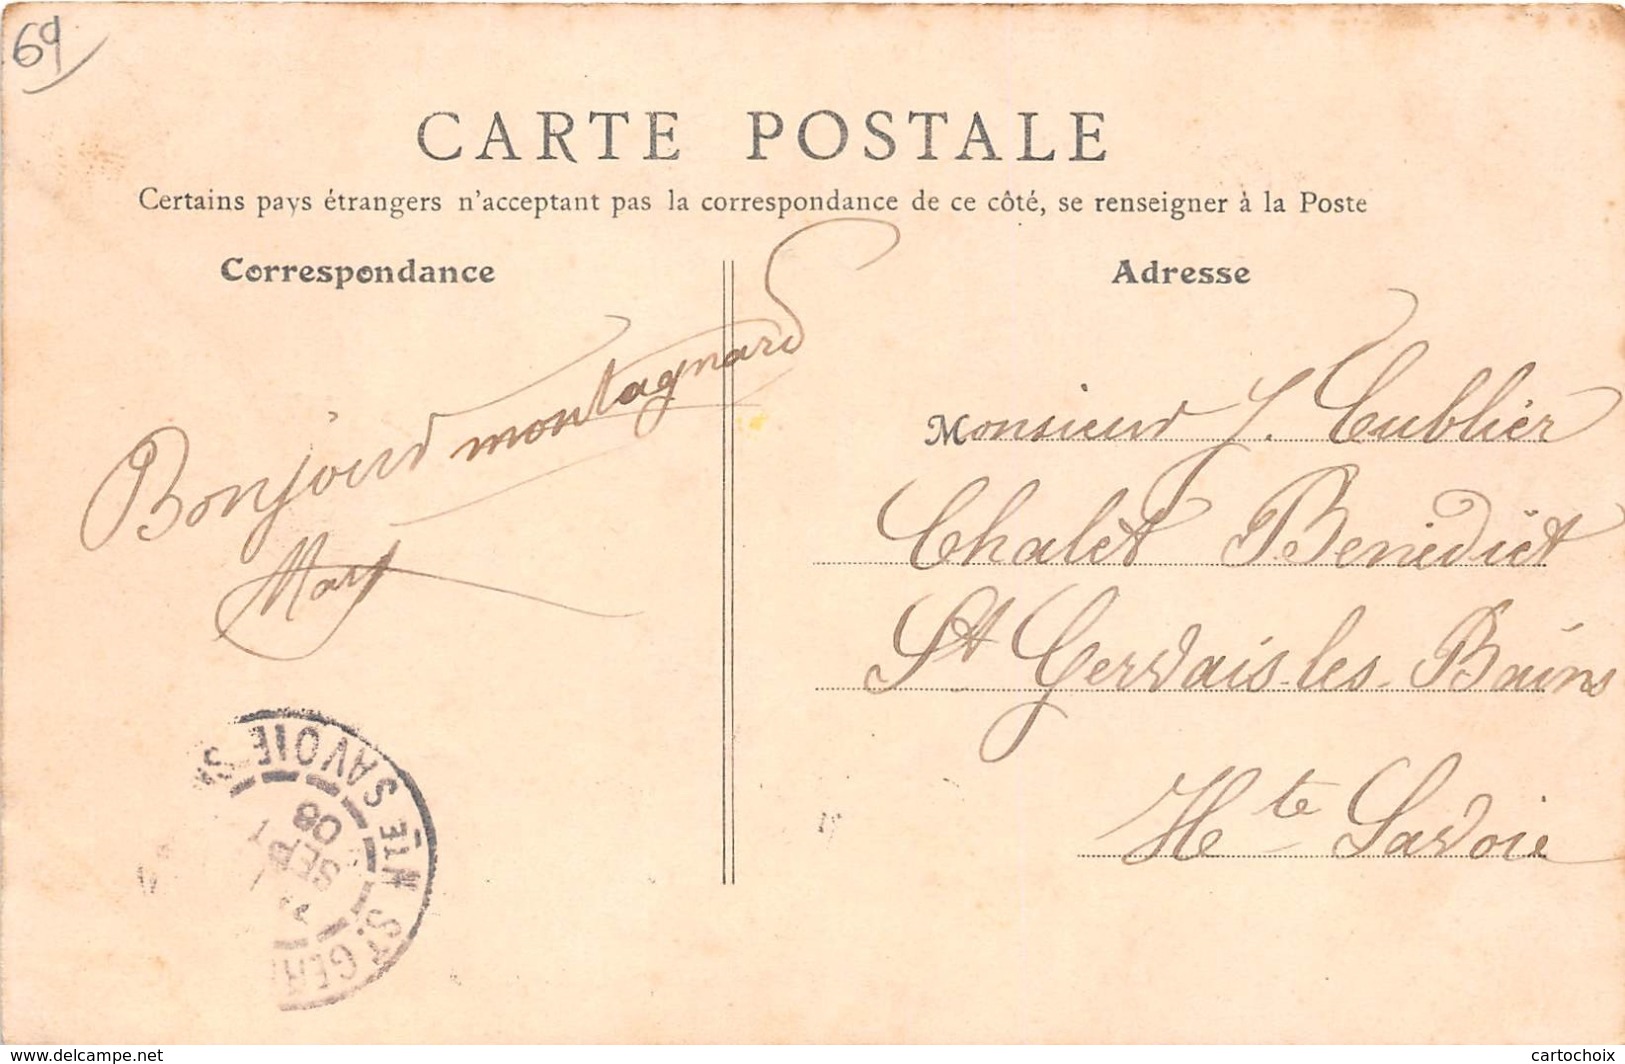 69
CARTE POSTALE
Certains pays étrangers n'acceptant pas la correspondance de ce côté, se renseigner à la Poste
Correspondance
Bonjour montagnard
Mary
Adresse
Monsieur J. Cublier
Chalet Benedict
St Gervais-les-Bains
Hte Savoie
HTE SAVOIE
SEPT
08
ST GER
www.delcampe.net
cartochoix